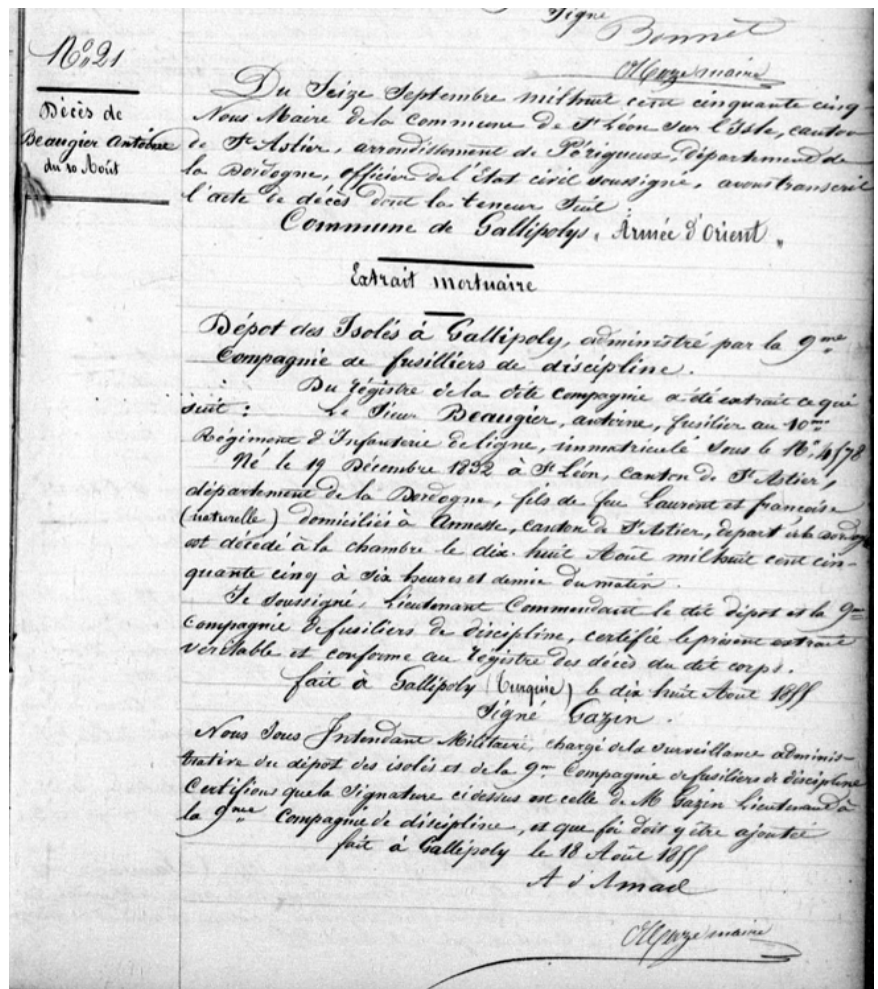 Signé
Bonnet
maire
N° 21
Décès de
Beaugier Antoine
du 10 Août
Du Seize Septembre mil huit cent cinquante cinq
Nous Maire de la Commune de St Léon sur l'Isle, canton
de St Astier, arrondissement de Périgueux, département de
la Dordogne, officier de l'État civil soussigné, avons transcrit
l'acte de décès dont la teneur suit
Commune de Gallipolys, Armée d'Orient „
Extrait mortuaire
Dépot des Isolés à Gallipoly, administré par la 9me
Compagnie de fusilliers de discipline.
Du régistre de la dite compagnie a été extrait ce qui
suit : Le Sieur Beaugier, antoine, fusilier au 10me
Régiment d'Infanterie de ligne, immatriculé sous le N° 4578
Né le 19 Décembre 1832 à St Léon, canton de St Astier,
département de la Dordogne, fils de feu Laurent et francoise
(naturelle) domiciliés à Annesse, canton de St Astier, départ
est décédé à la chambre le dix-huit Août mil huit cent cin-
quante cinq à six heures et demie du matin.
Je soussigné, Lieutenant Commendant le dit dépot et la 9me
Compagnie de fusiliers de discipline, certifie le présent extrait
véritable et conforme au registre des décès du dit corps.
fait à Gallipoly (Turquie) le dix huit Août 1855
Signé Gazin.
Nous Sous Intendant Militaire, chargé de la surveillance adminis-
trative du dépot des isolés et de la 9me Compagnie de fusiliers de discipline
Certifions que la Signature ci dessus est celle de Mr Gazin Lieutenant à
la 9me Compagnie de discipline, et que foi doit y être ajoutée
fait à Gallipoly le 18 Août 1855
A d'Amad
maire